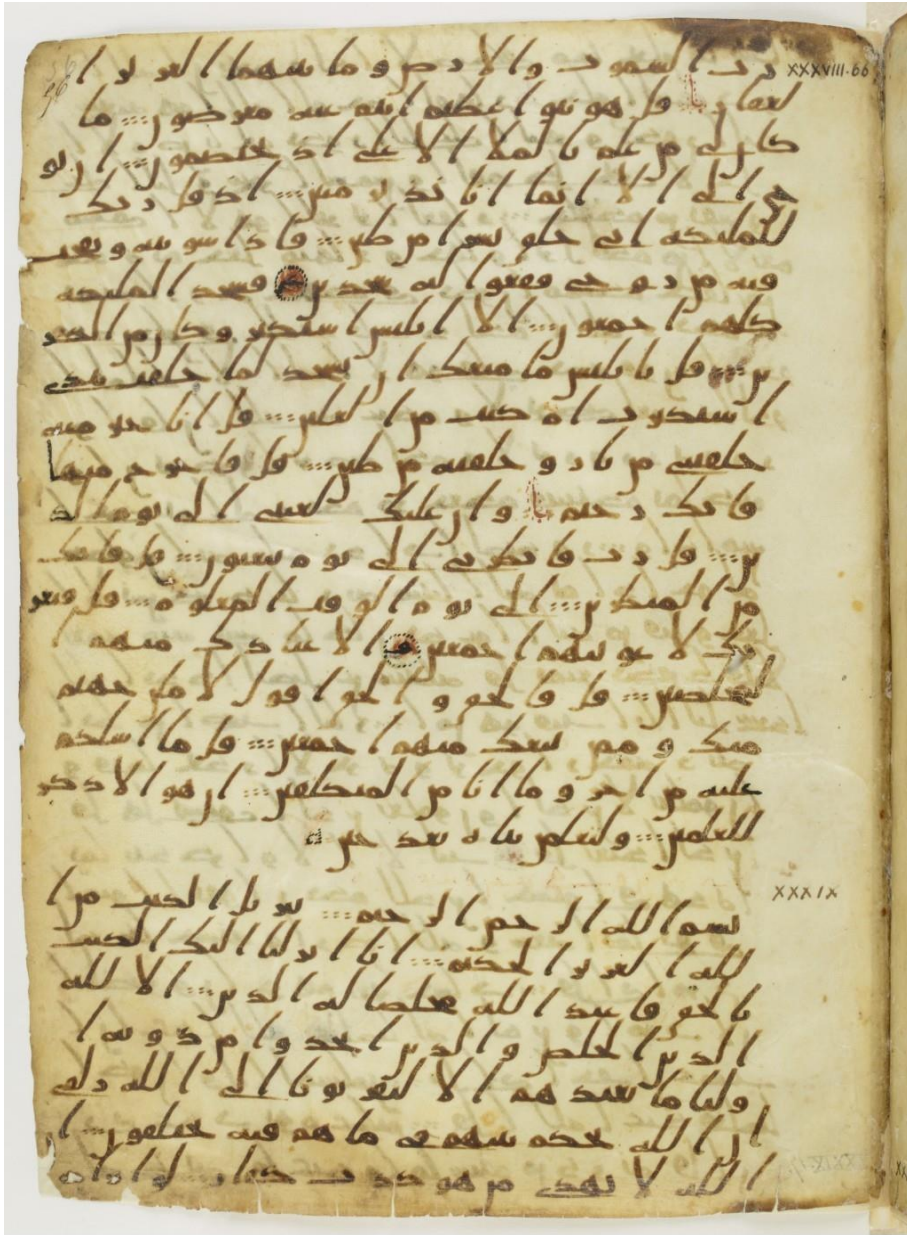 رب السموت والارض وما بينهما العزيز ا XXXVIII.66
لغفر قل هو نبوا عظيم انتم عنه معرضون ما
كان لي من علم بالملا الاعلى اذ يختصمون ان يو
حى الى الا انما انا نذير مبين اذ قل ربك
للملئكة اني خلق بشرا من طين فاذا سويته ونفخت
فيه من روحي فقعوا له سجدين فسجد الملئكة
كلهم اجمعون الا ابليس استكبر وكان من الكفر
ين قل يابليس ما منعك ان تسجد لما خلقت بيدي
استكبرت ام كنت من العلين قل انا خير منه
خلقتني من نار وخلقته من طين قل فاخرج منها
فانك رجيم وان عليك لعنتي الى يوم الد
ين قل رب فانظرني الى يوم يبعثون قل فانك
من المنظرين الى يوم الوقت المعلوم قل فبعز
تك لاغوينهم اجمعين الا عبادك منهم ا
لمخلصين قل فالحق والحق اقول لاملن جهنم
منك وممن تبعك منهم اجمعين قل ما اسلكم
عليه من اجر وما انا من المتكلفين ان هو الا ذكر
للعلمين ولتعلمن نباه بعد حين
XXXIX
بسم الله الرحمن الرحيم تنزيل الكتب من ا
لله العزيز الحكيم انا انزلنا اليك الكتب
بالحق فاعبد الله مخلصا له الدين الا لله
الدين الخلص والذين اتخذوا من دونه ا
وليا ما نعبدهم الا ليقربونا الى الله زلفى
ان الله يحكم بينهم في ما هم فيه يختلفون ان
الله لا يهدي من هو كذب كفار لو اراد